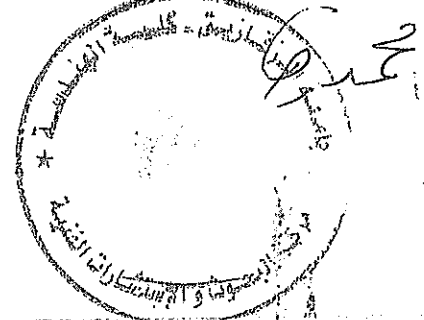 جامعة الزقازيق - كلية الهندسة
مركز البحوث والاستشارات الفنية